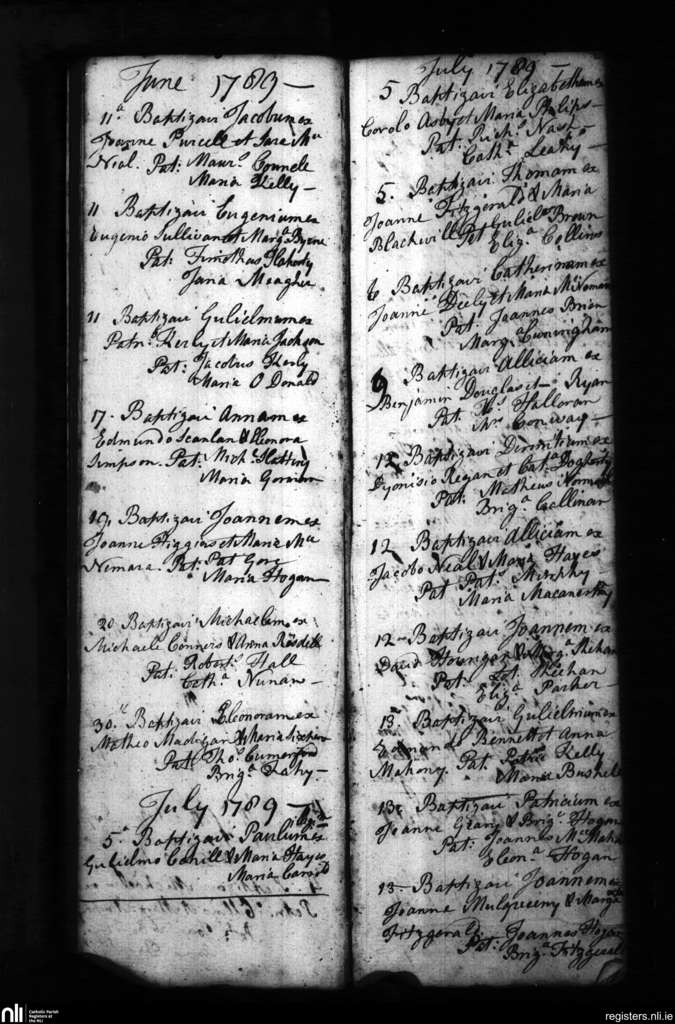 June 1789 —
11ª Baptizavi Jacobum ex
Joanne Purcell et Sara Mc
Nial. Pat: Maurs. Connell
Maria Kelly —
11 Baptizavi Eugenium ex
Eugenio Sullivan et Margª Byrne
Pat: Timothas Flaherty
Jana Meagher
11 Baptizavi Gulielmum ex
Patric. Kerly et Maria Jackson
Pat: Jacobus Kerly
Maria O Donald
17. Baptizavi Annam ex
Edmundo Scanlan & Eleonora
Simpson. Pat: Michl. Slattery
Maria
19. Baptizavi Joannem ex
Joanne Higgins et Maria Mc
Nemara. Pat: Pat
Maria Hogan
20 Baptizavi Michaelem ex
Michaele Conners & Anna
Pat: Robert. Hall
Cathª Nunan —
30ª Baptizavi Eleonoram ex
Matheo Madigan & Maria
Pat: Thos. Cumerford
Brigª Lahy —
July 1789 —
5ª Baptizavi Paulum ex
Gulielmo Cahill & Maria Hayes
Maria Carrol
July 1789 —
5 Baptizavi Elizabetham ex
Corolo Asby et Maria Philips —
Pat: Richd. Nash
Cathª Leahy —
5. Baptizavi Thomam ex
Joanne Fitzgerald & Maria
Blackwill Pat Guliel Brown
Elizª Collins
6 Baptizavi Catherinam ex
Joanne Deely et Maria McNemara
Pat: Joannes Brien
Margª Cuningham
6 Baptizavi Alliciam ex
Benjamin Douglas et — Ryan
Pat Ths Halloran
Mrs Conway —
12 Baptizavi Demetrium ex
Dyonisio Regan et Catª Dogherty
Pat: Matheus
Brigª Callinan
12 Baptizavi Alliciam ex
Jacobo Neal & Maria Hayes
Pat Pat: Murphy
Maria
12 — Baptizavi Joannem ex
David & Margª Shehan
Pat: Pat Sheehan
Elizª Parker —
13 Baptizavi Gulielmum ex
Edmundo Bennett et Anna
Mahony. Pat: Patric Kelly
Maria Bushell
13 Baptizavi Patricium ex
Joanne Grany & Brigª Hogan
Pat: Joannes Mc Mahon
Eleonª Hogan
13 — Baptizavi Joannem ex
Joanne Mulqueeny & Margª
Fitzgerald. Joannes Hogan
Pat: Brigª Fitzgerald
nli
Catholic Parish
Registers at
the NLI
registers.nli.ie